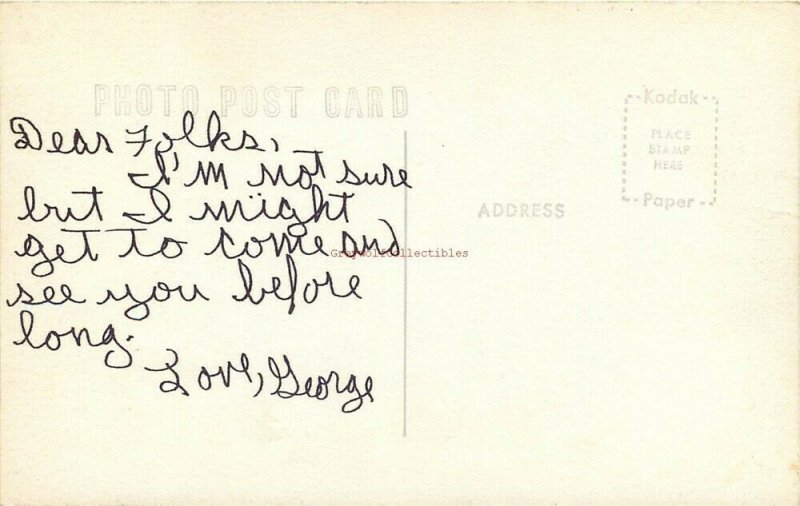 PHOTO POST CARD
Dear Folks,
I'm not sure
but I might
get to come and
see you before
long.
Love, George
Kodak
PLACE
STAMP
HERE
Paper
ADDRESS
GreywolfCollectibles